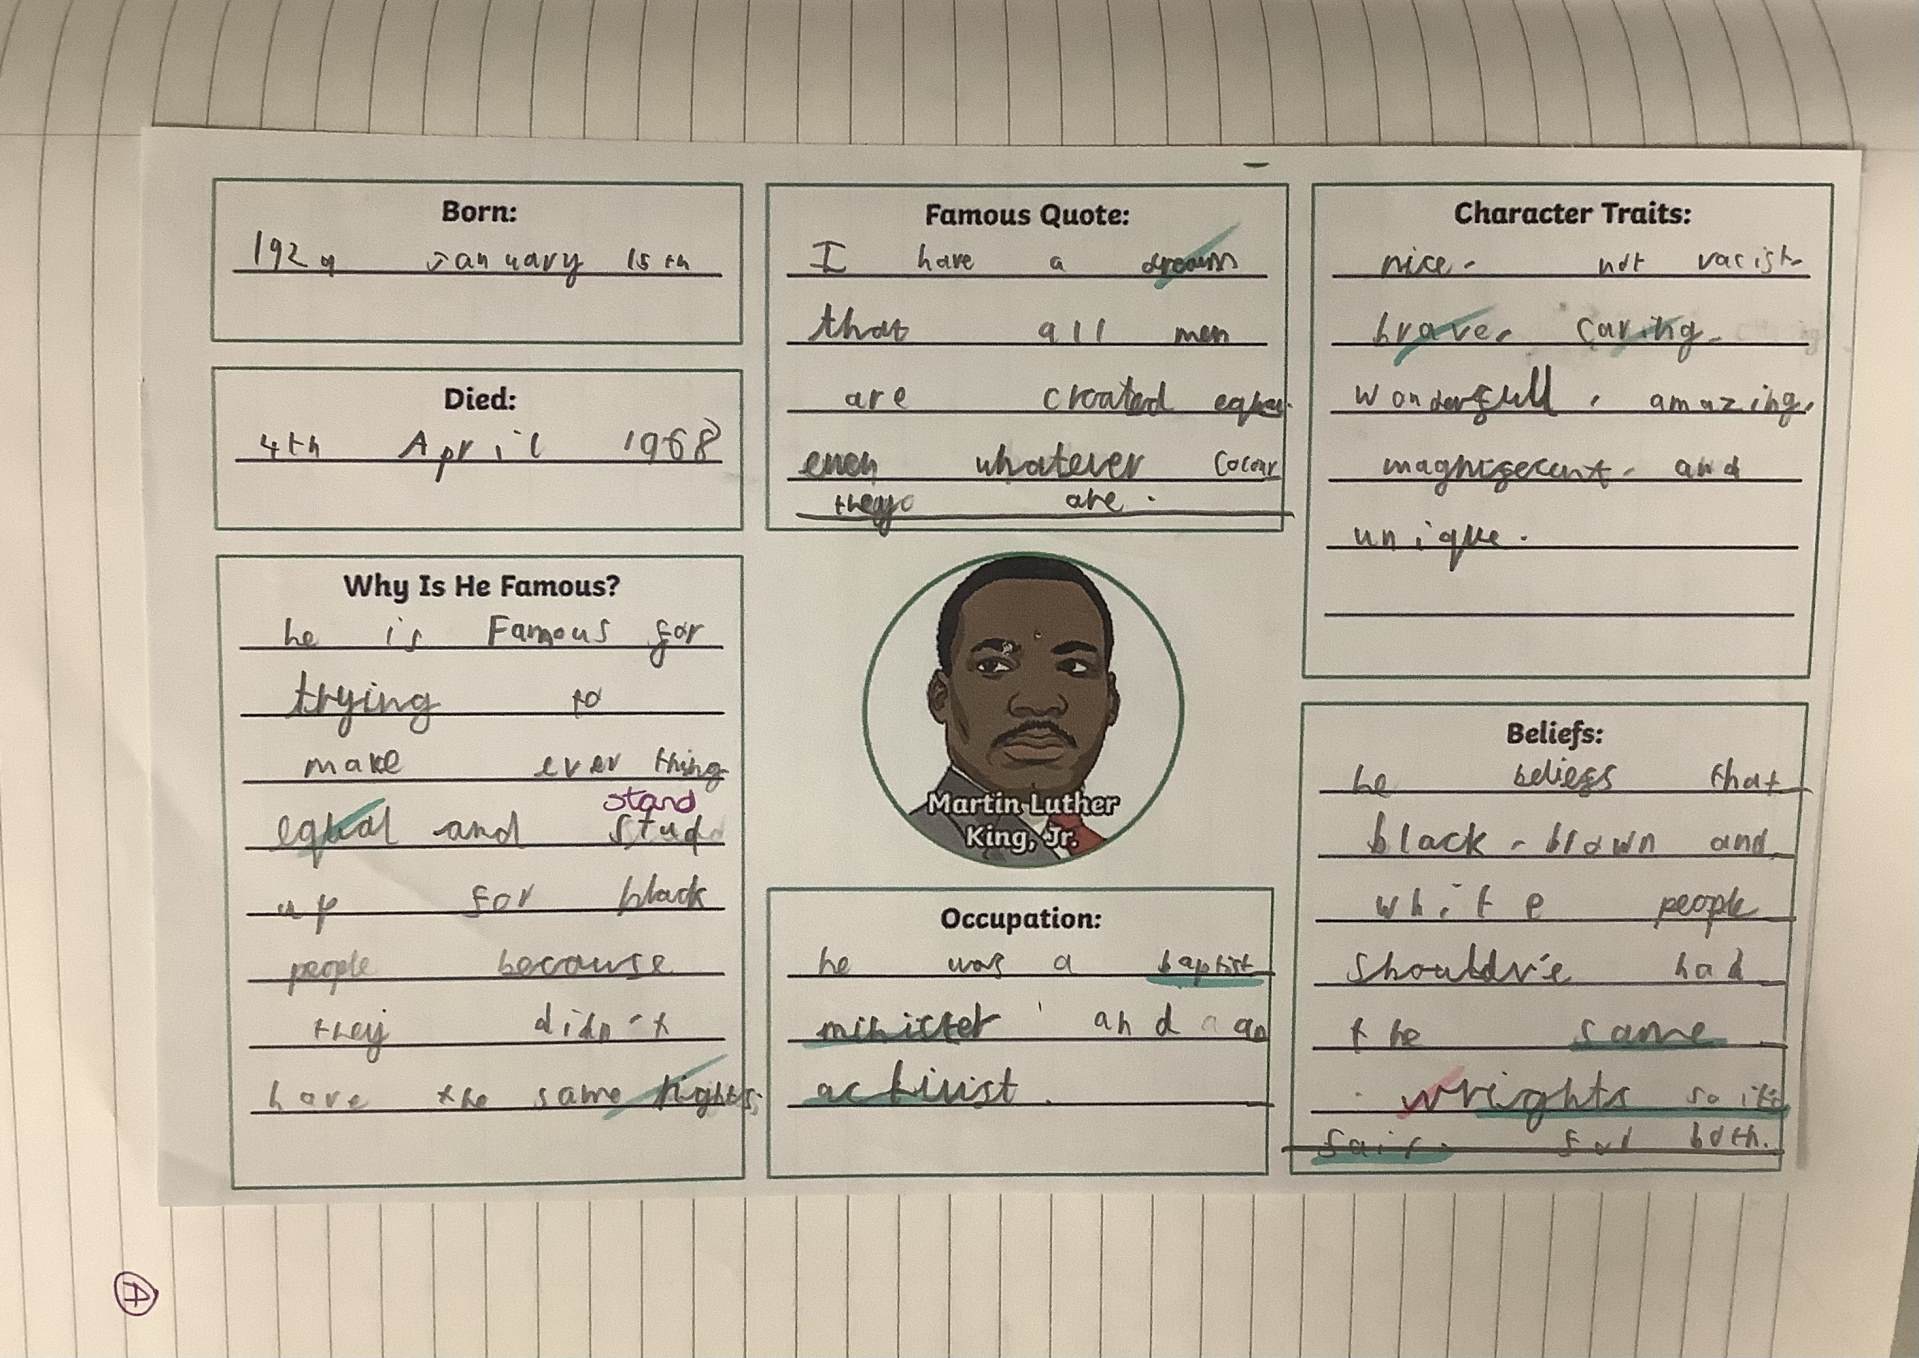 Born:
1929 January 15th
Died:
4th April 1968
Why Is He Famous?
he is Famous for
trying to
make ever thing
stand
equal and stud
up for black
people because
they didn't
have the same rights.
Famous Quote:
I have a dream
that all men
are created equal
even whatever colour
they are.
Martin Luther
King, Jr.
Occupation:
he was a baptist
minister and an
activist.
Character Traits:
nice, not racist,
brave, caring,
wonderfull, amazing,
magnifecent, and
unique.
Beliefs:
he beliefs that
black, brown and
white people
shouldv'e had
the same
wrights so its
fair for both.